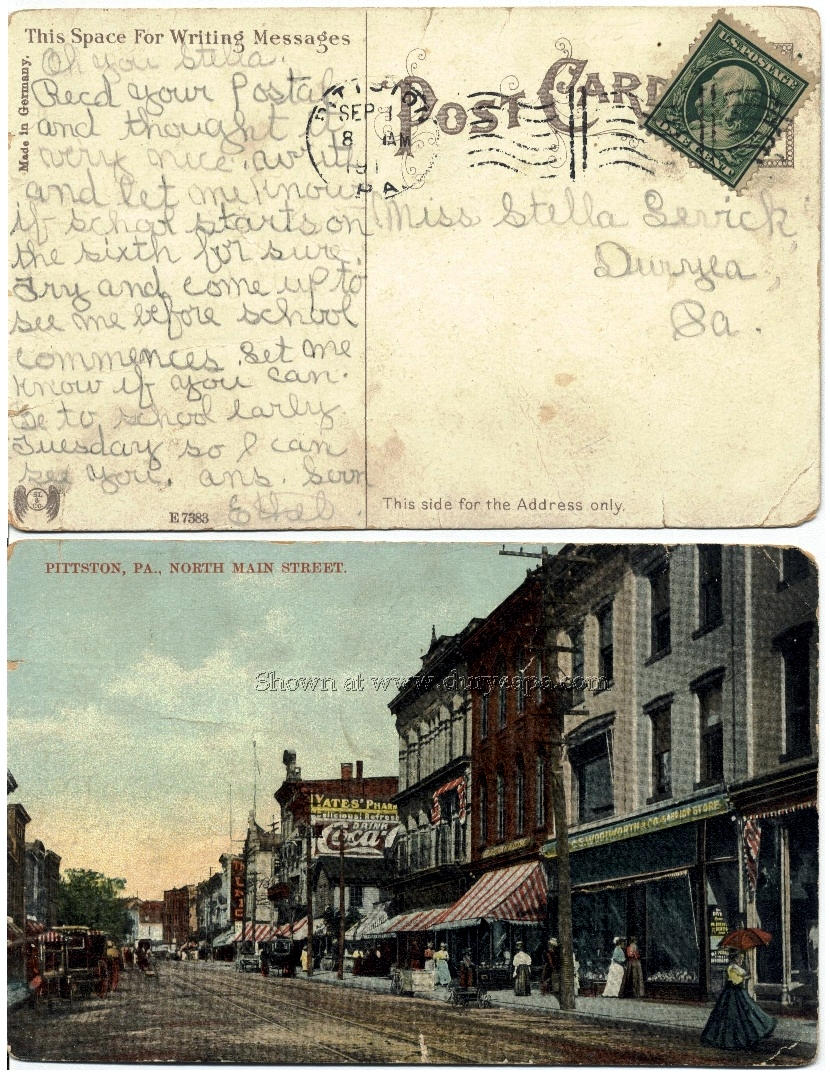 This Space For Writing Messages
Made in Germany.
POST CARD
U.S. POSTAGE
ONE CENT
PITTSTON
SEP 1
8 AM
191
PA.
Oh you Stella.
Recd your Postal
and thought it
very nice. write
and let me know
if school starts on
the sixth for sure.
Try and come up to
see me before school
commences. Let me
know if you can.
Be to school early
Tuesday so I can
see you. ans. soon
Ethel.
Miss Stella Sevick
Duryea,
Pa.
SL & CO.
E 7383
This side for the Address only.
PITTSTON, PA., NORTH MAIN STREET.
Shown at www.duryeapa.com
YATES' PHAR
Delicious! Refres
DRINK
Coca-C
WOOLWORTH & CO. 5 AND 10¢ STORE